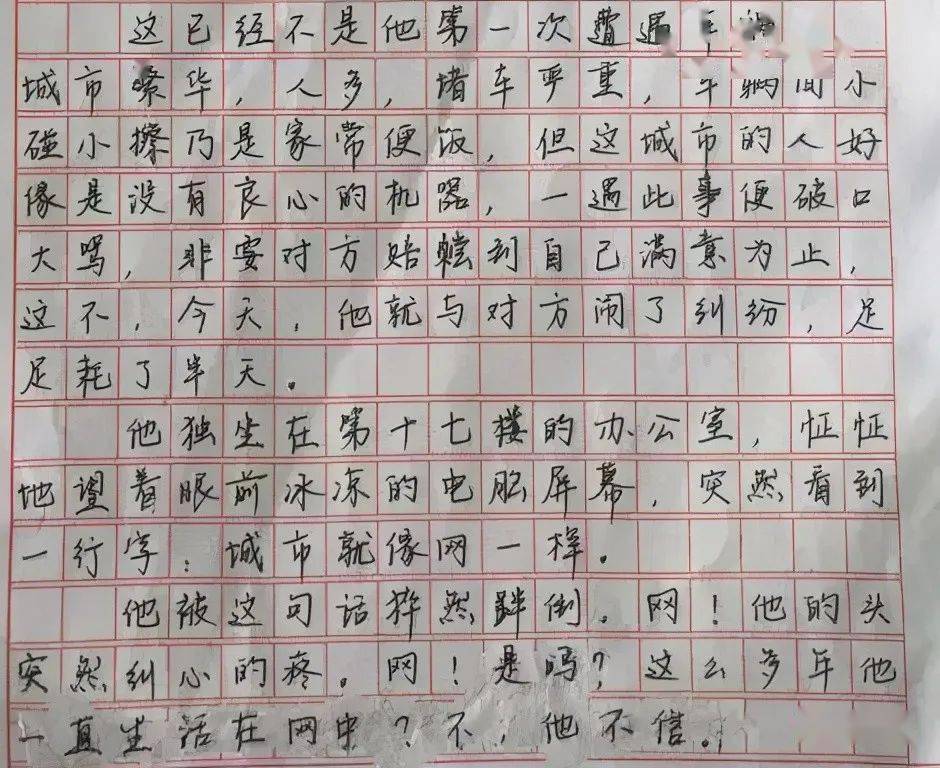 这已经不是他第一次遭遇车
城市繁华，人多，堵车严重，车辆间小
碰小擦乃是家常便饭，但这城市的人好
像是没有良心的机器，一遇此事便破口
大骂，非要对方赔偿到自己满意为止，
这不，今天，他就与对方闹了纠纷，足
足耗了半天。
他独坐在第十七楼的办公室，怔怔
地望着眼前冰凉的电脑屏幕，突然看到
一行字：城市就像网一样。
他被这句话猝然绊倒。网！他的头
突然纠心的疼。网！是吗？这么多年他
一直生活在网中？不，他不信。